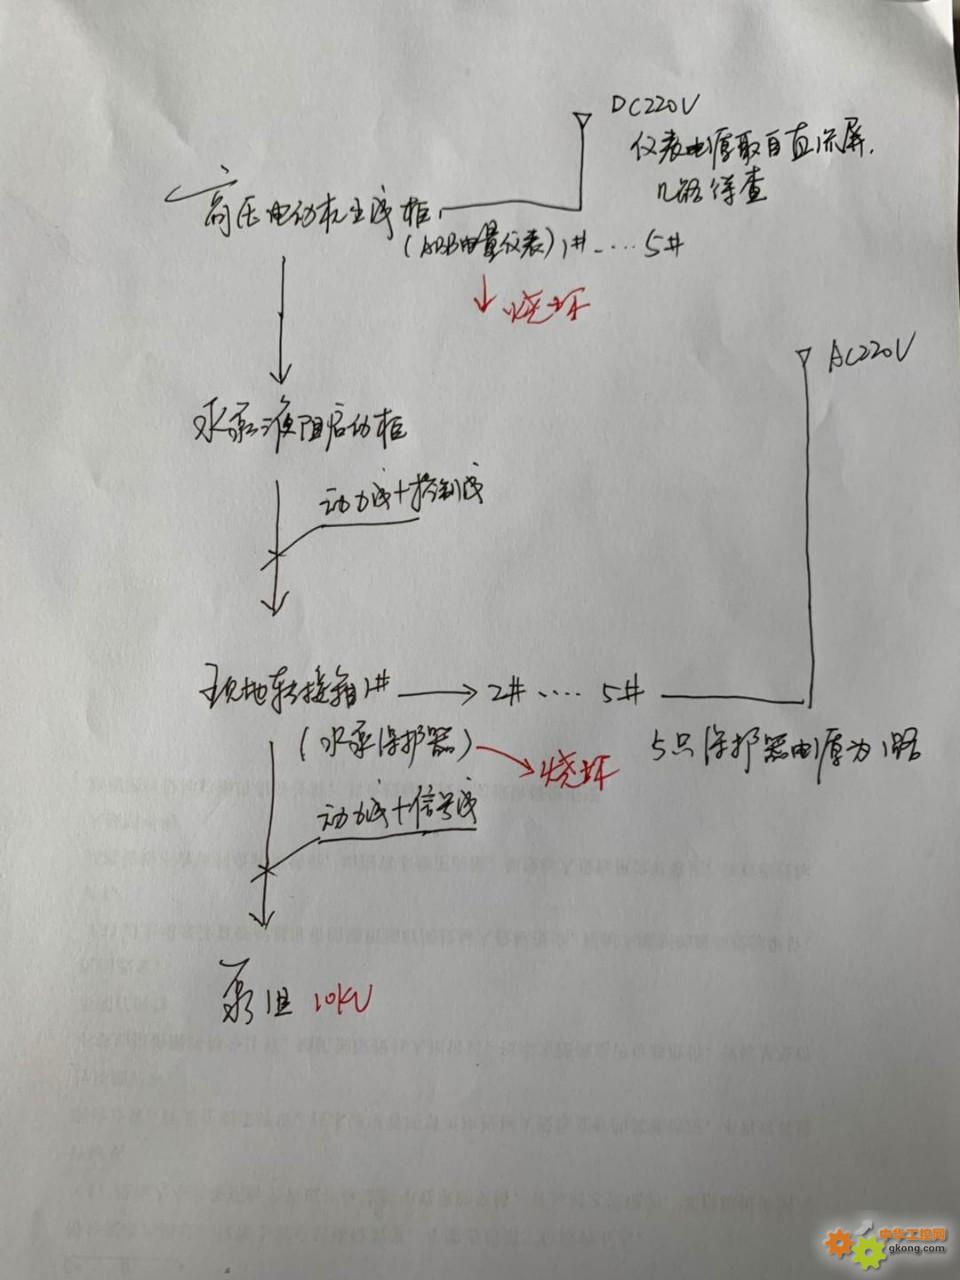 DC220V
仪表电源取自直流屏,
几路待查
高压电动机主线柜
(ABB电量仪表) 1# .... 5#
烧坏
AC220V
水泵液阻启动柜
动力线+控制线
现地转接箱1# 2# .... 5#
(水泵保护器)
烧坏
5只保护器电源为1路
动力线+信号线
泵组 10KV
中华工控网
gkong.com